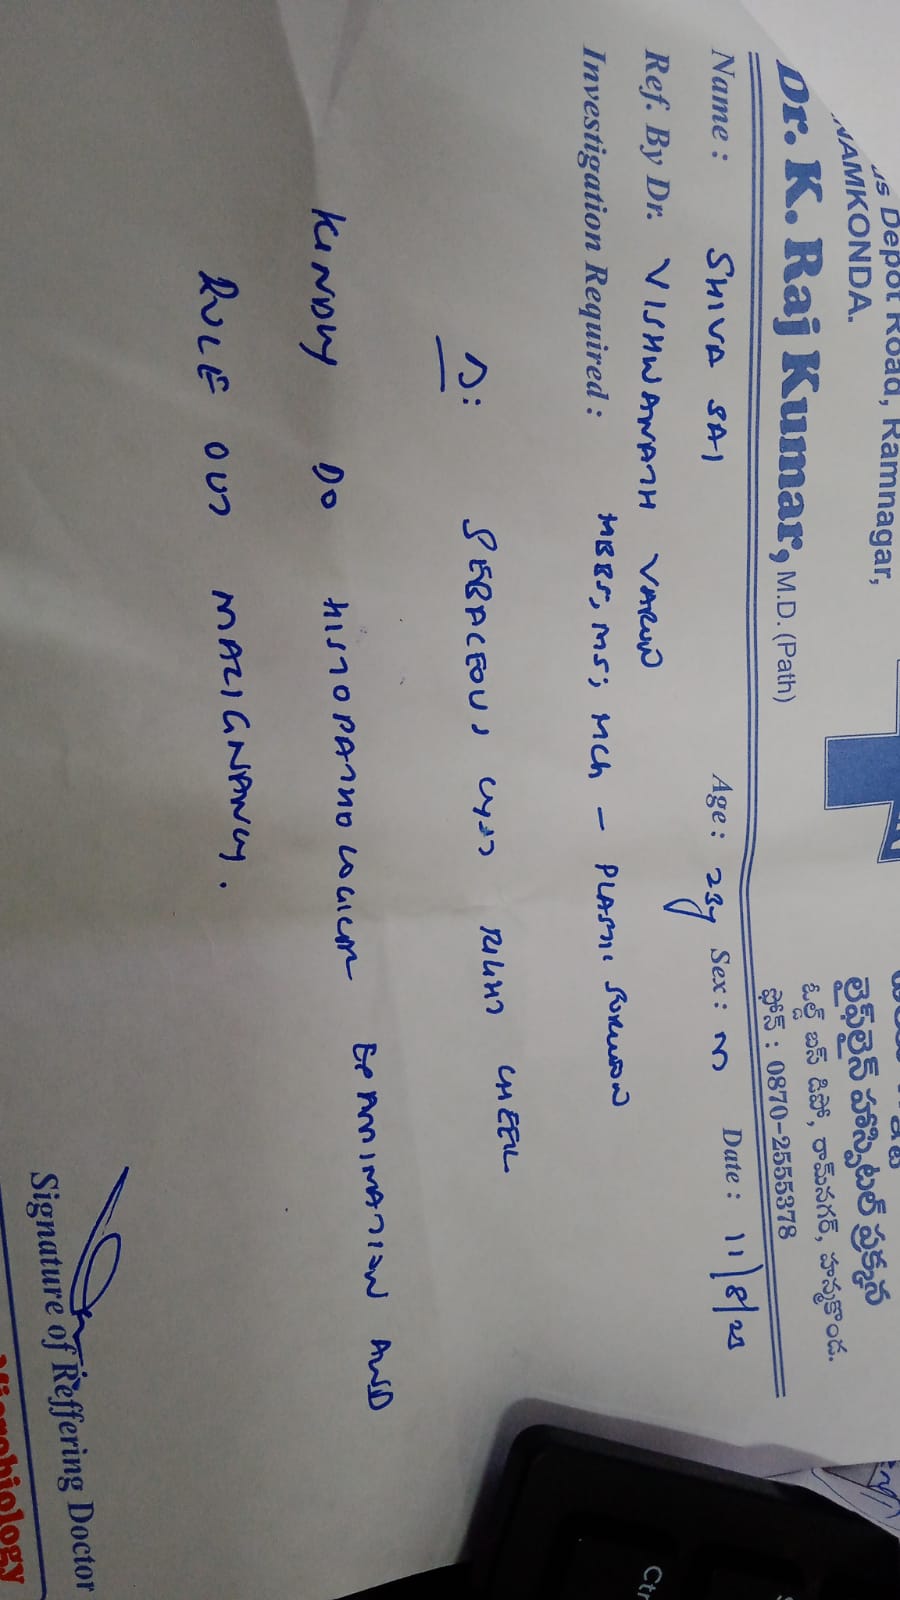 Depot Road, Ramnagar,
NAMKONDA.
Dr. K. Raj Kumar, M.D. (Path)
లైఫ్‌లైన్ హాస్పిటల్ ప్రక్కన
ఓల్డ్ బస్ డిపో, రామ్‌నగర్, హన్మకొండ.
ఫోన్ : 0870-2555378
Name : SHIVA SAI Age : 23y Sex : M Date : 11/8/25
Ref. By Dr. VISHWANATH VARUN
Investigation Required : MBBS, MS, MCh - PLASTIC SURGEON
D: SEBACEOUS CYST RIGHT CHEEK
KINDLY DO HISTOPATHOLOGICAL EXAMINATION AND
RULE OUT MALIGNANCY.
Signature of Reffering Doctor
Microbiology
Ctr